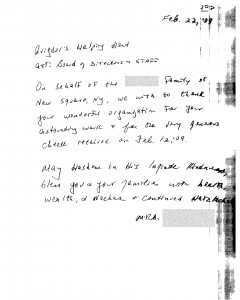 Feb. 22, '09
Avigdor's Helping Hand
att: Board of Directors & STAFF
On behalf of the Family of
New Square, NY, we wish to thank
your wonderful organization for your
astounding work & for the very generous
check received on Feb. 12, '09.
May Hashem in His infinite Kindness,
bless you & your families with health,
wealth, & Nachas & continued Hatzlacha
MRS.